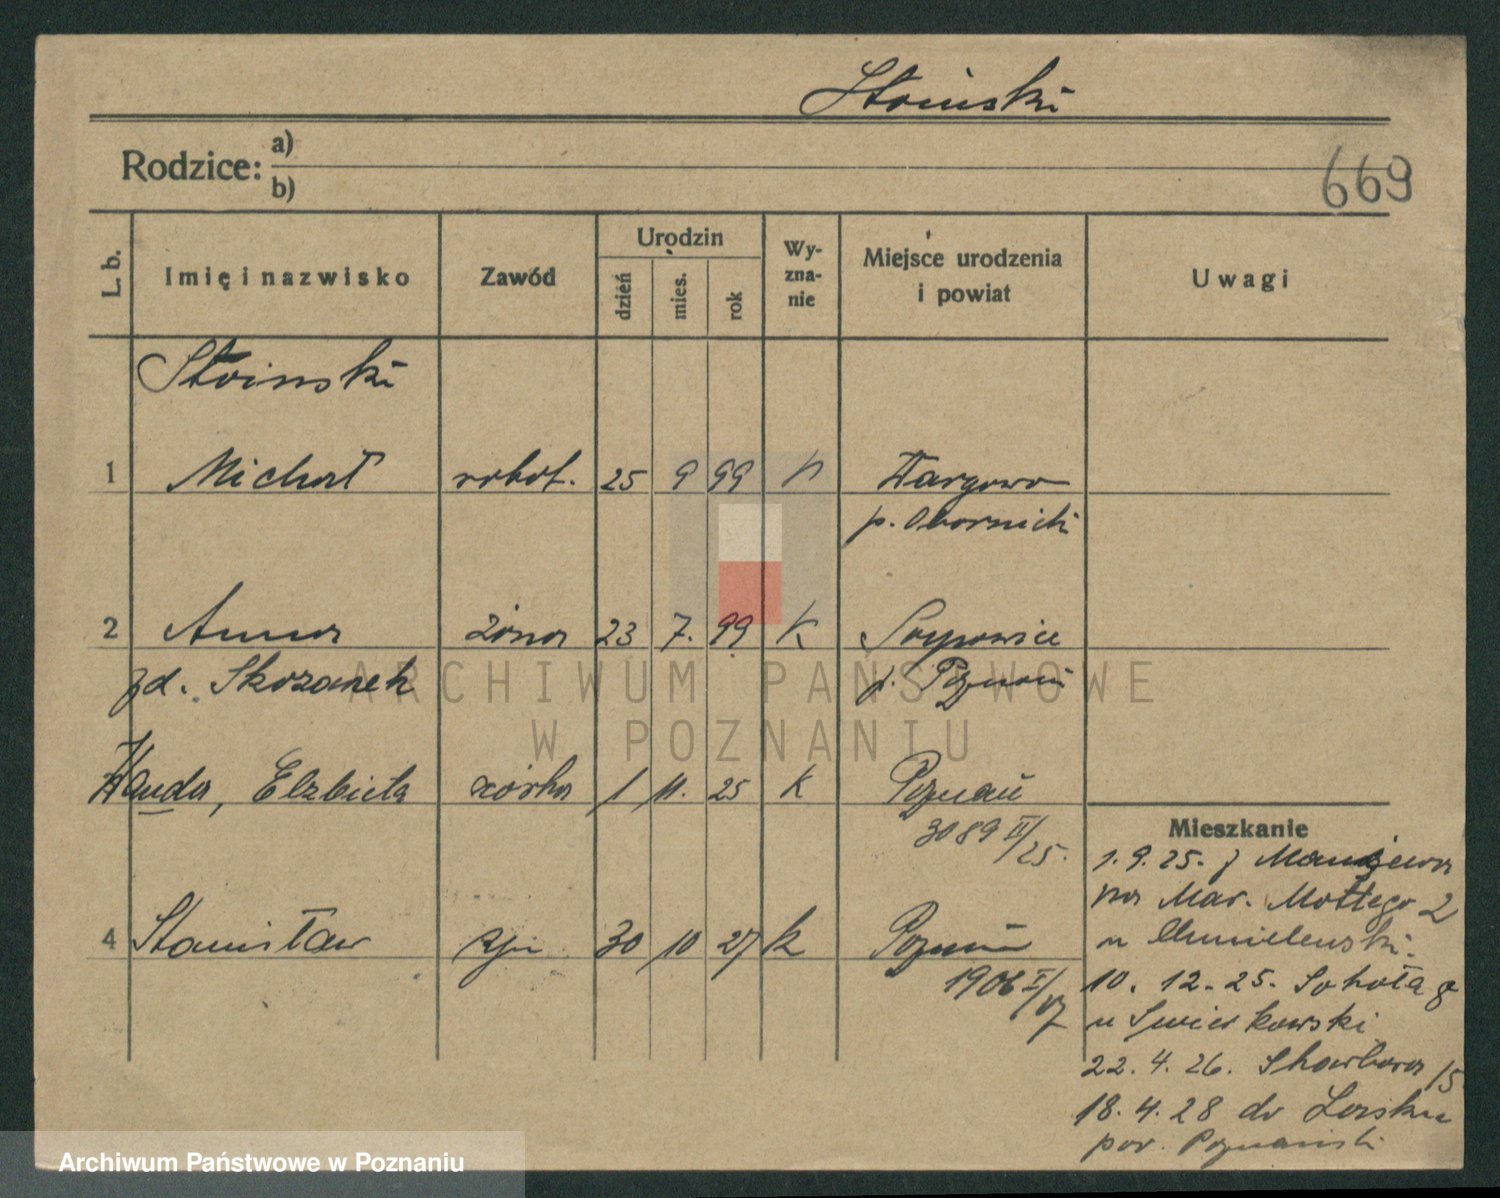 Stoinski
Rodzice: a)
b)
669
L. b.
Imię i nazwisko
Zawód
Urodzin
dzień
mies.
rok
Wy-
zna-
nie
Miejsce urodzenia
i powiat
Uwagi
Stoinski
1 Michał robot. 25 9 99 K Wargowo
p. Obornicki
2 Anna żona 23 7. 99 K
zd. Skozanek p. Poznań
Wanda, Elżbieta córka 1 11. 25 K Poznań
3089 II/25.
4 Stanisław syn 30 10 27 K Poznań
1906 I/27
Mieszkanie
1. 9. 25. z
na Mar. Mottego 2
u Chmielewski.
10. 12. 25. Sokoła 8
u Swierkowski
22. 4. 26. Skarbowa 15
18. 4. 28 do
pow. Poznański
ARCHIWUM PAŃSTWOWE
W POZNANIU
Archiwum Państwowe w Poznaniu